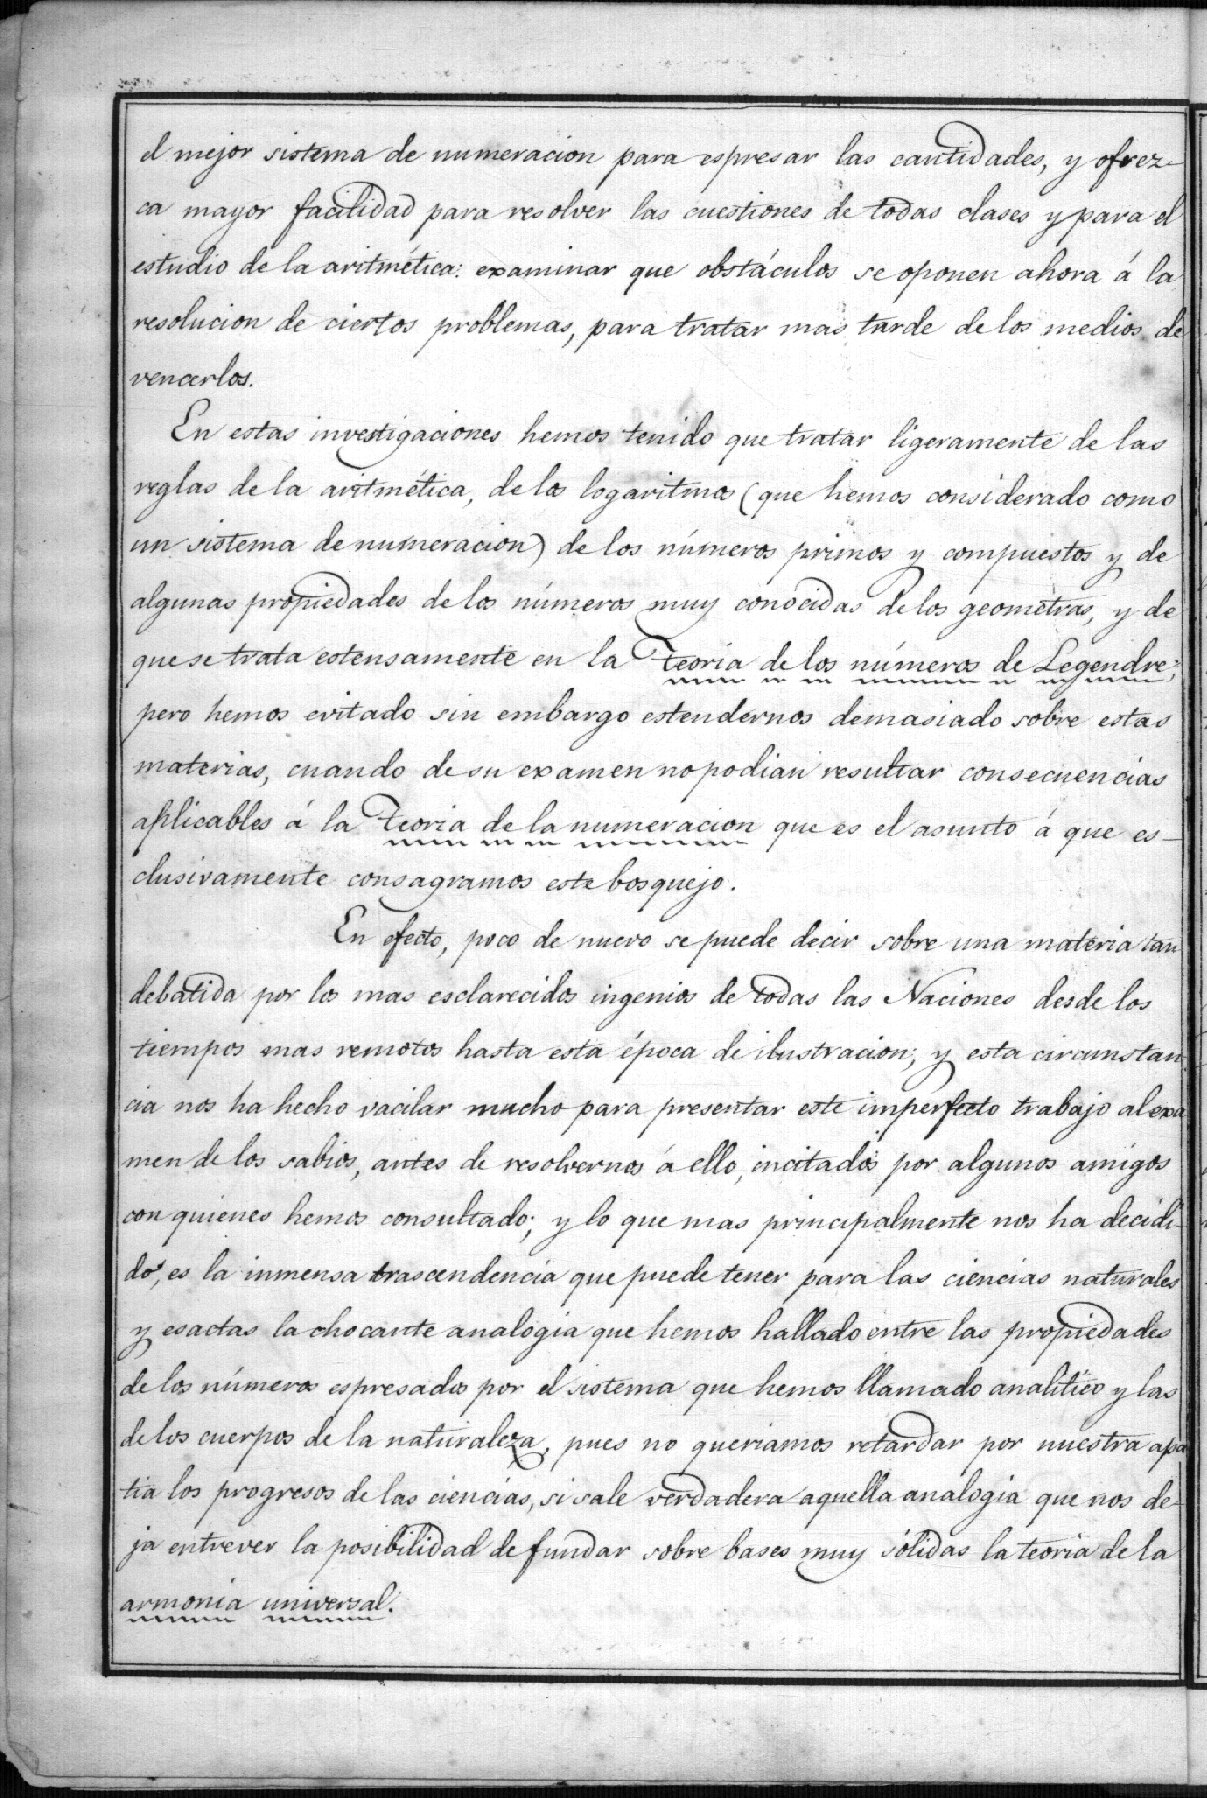 el mejor sistema de numeracion para espresar las cantidades, y ofrez-
ca mayor facilidad para resolver las cuestiones de todas clases y para el
estudio de la aritmética: examinar que obstáculos se oponen ahora á la
resolucion de ciertos problemas, para tratar mas tarde de los medios de
vencerlos.
En estas investigaciones hemos tenido que tratar ligeramente de las
reglas de la aritmética, de los logaritmos (que hemos considerado como
un sistema de numeracion) de los números primos y compuestos y de
algunas propiedades de los números muy conocidas de los geometras, y de
que se trata estensamente en la Teoria de los números de Legendre;
pero hemos evitado sin embargo estendernos demasiado sobre estas
materias, cuando de su examen no podian resultar consecuencias
aplicables á la Teoria de la numeracion que es el asunto á que es-
clusivamente consagramos este bosquejo.
En efecto, poco de nuevo se puede decir sobre una materia tan
debatida por los mas esclarecidos ingenios de todas las Naciones desde los
tiempos mas remotos hasta esta época de ilustracion; y esta circunstan
cia nos ha hecho vacilar mucho para presentar este imperfecto trabajo al exa
men de los sabios, antes de resolvernos á ello, incitados por algunos amigos
con quienes hemos consultado; y lo que mas principalmente nos ha decidi-
do, es la inmensa trascendencia que puede tener para las ciencias naturales
y esactas la chocante analogia que hemos hallado entre las propiedades
de los números espresados por el sistema que hemos llamado analitico y las
de los cuerpos de la naturaleza, pues no queriamos retardar por nuestra apa
tia los progresos de las ciencias, si sale verdadera aquella analogia que nos de-
ja entrever la posibilidad de fundar sobre bases muy sólidas la teoria de la
armonia universal.